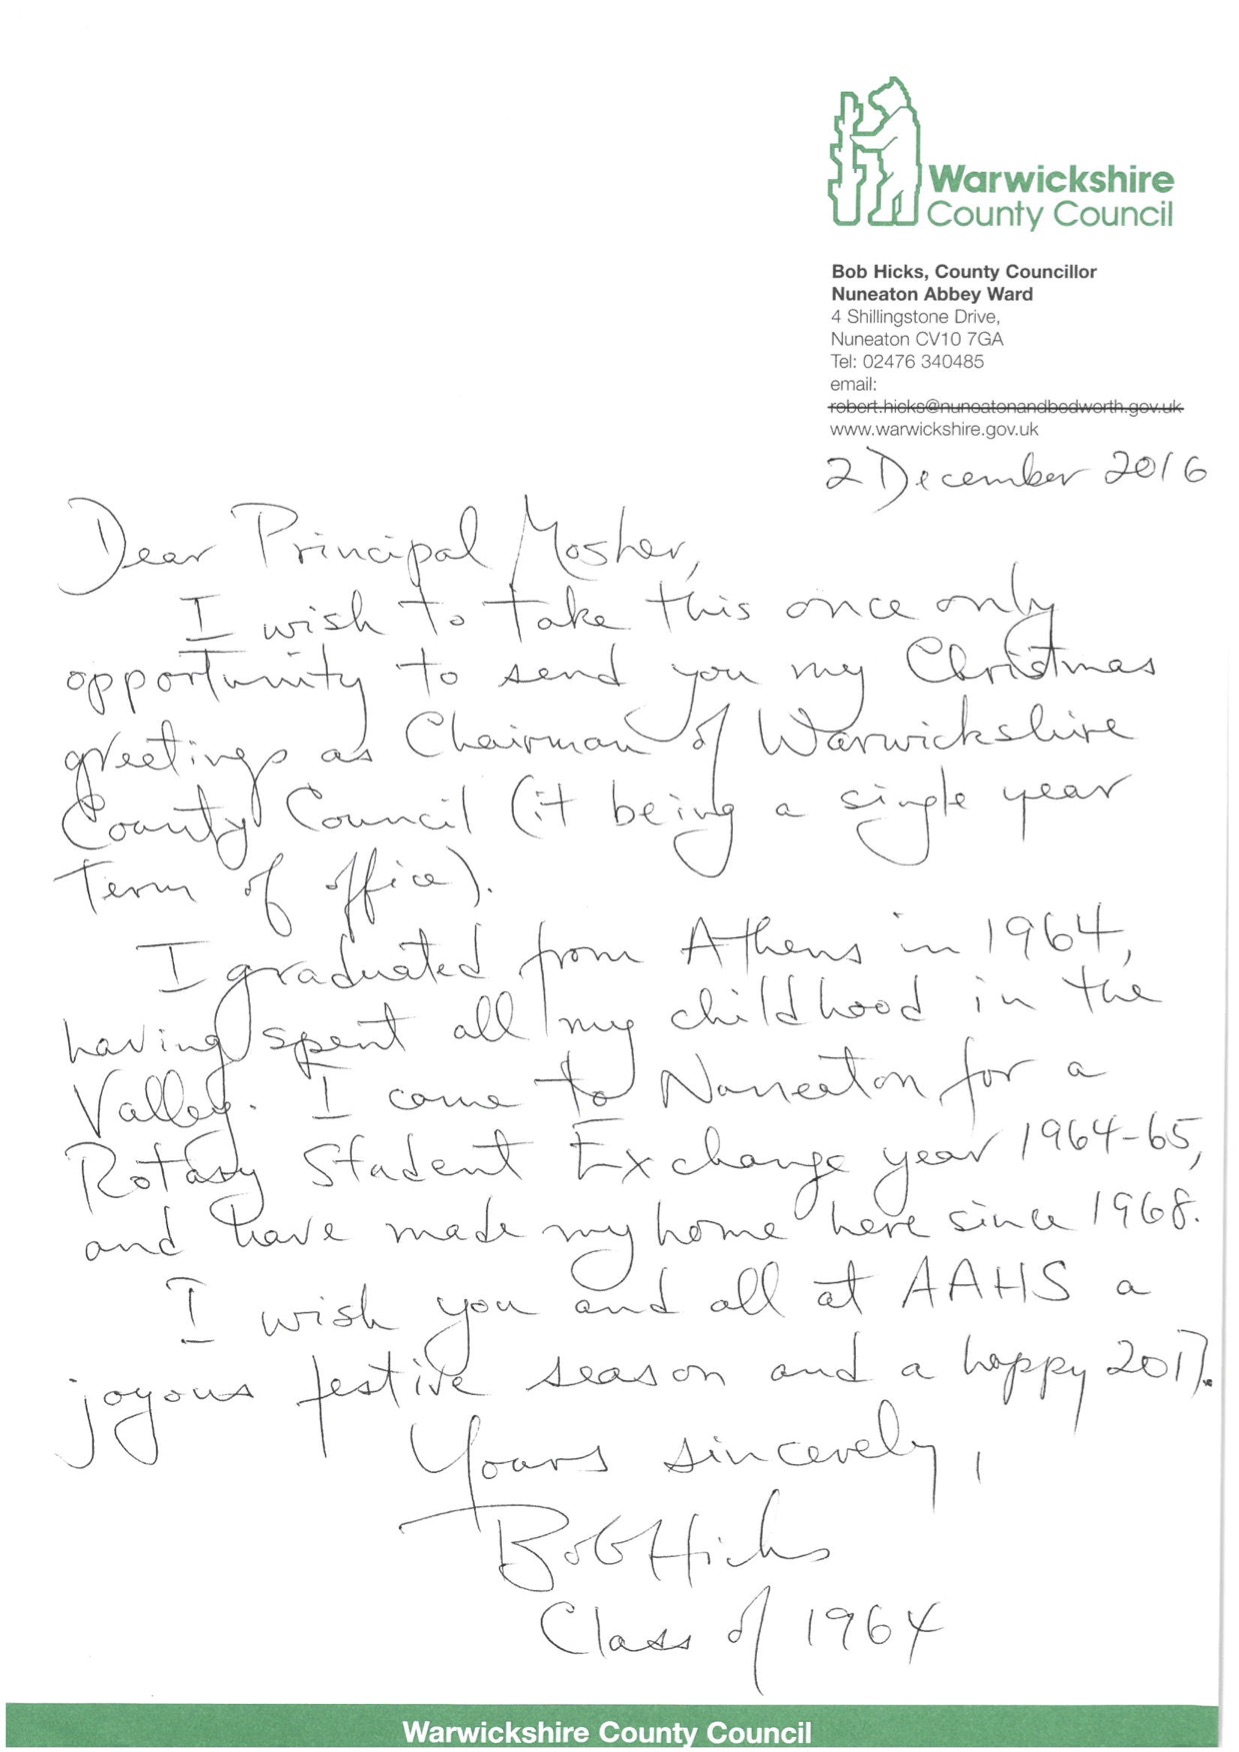 Warwickshire
County Council
Bob Hicks, County Councillor
Nuneaton Abbey Ward
4 Shillingstone Drive,
Nuneaton CV10 7GA
Tel: 02476 340485
email:
robert.hicks@nuneatonandbedworth.gov.uk
www.warwickshire.gov.uk
2 December 2016
Dear Principal Mosher,
I wish to take this once only
opportunity to send you my Christmas
greetings as Chairman of Warwickshire
County Council (it being a single year
term of office).
I graduated from Athens in 1964,
having spent all my childhood in the
Valley. I came to Nuneaton for a
Rotary Student Exchange year 1964-65,
and have made my home here since 1968.
I wish you and all at AAHS a
joyous festive season and a happy 2017.
Yours sincerely,
Bob Hicks
Class of 1964
Warwickshire County Council